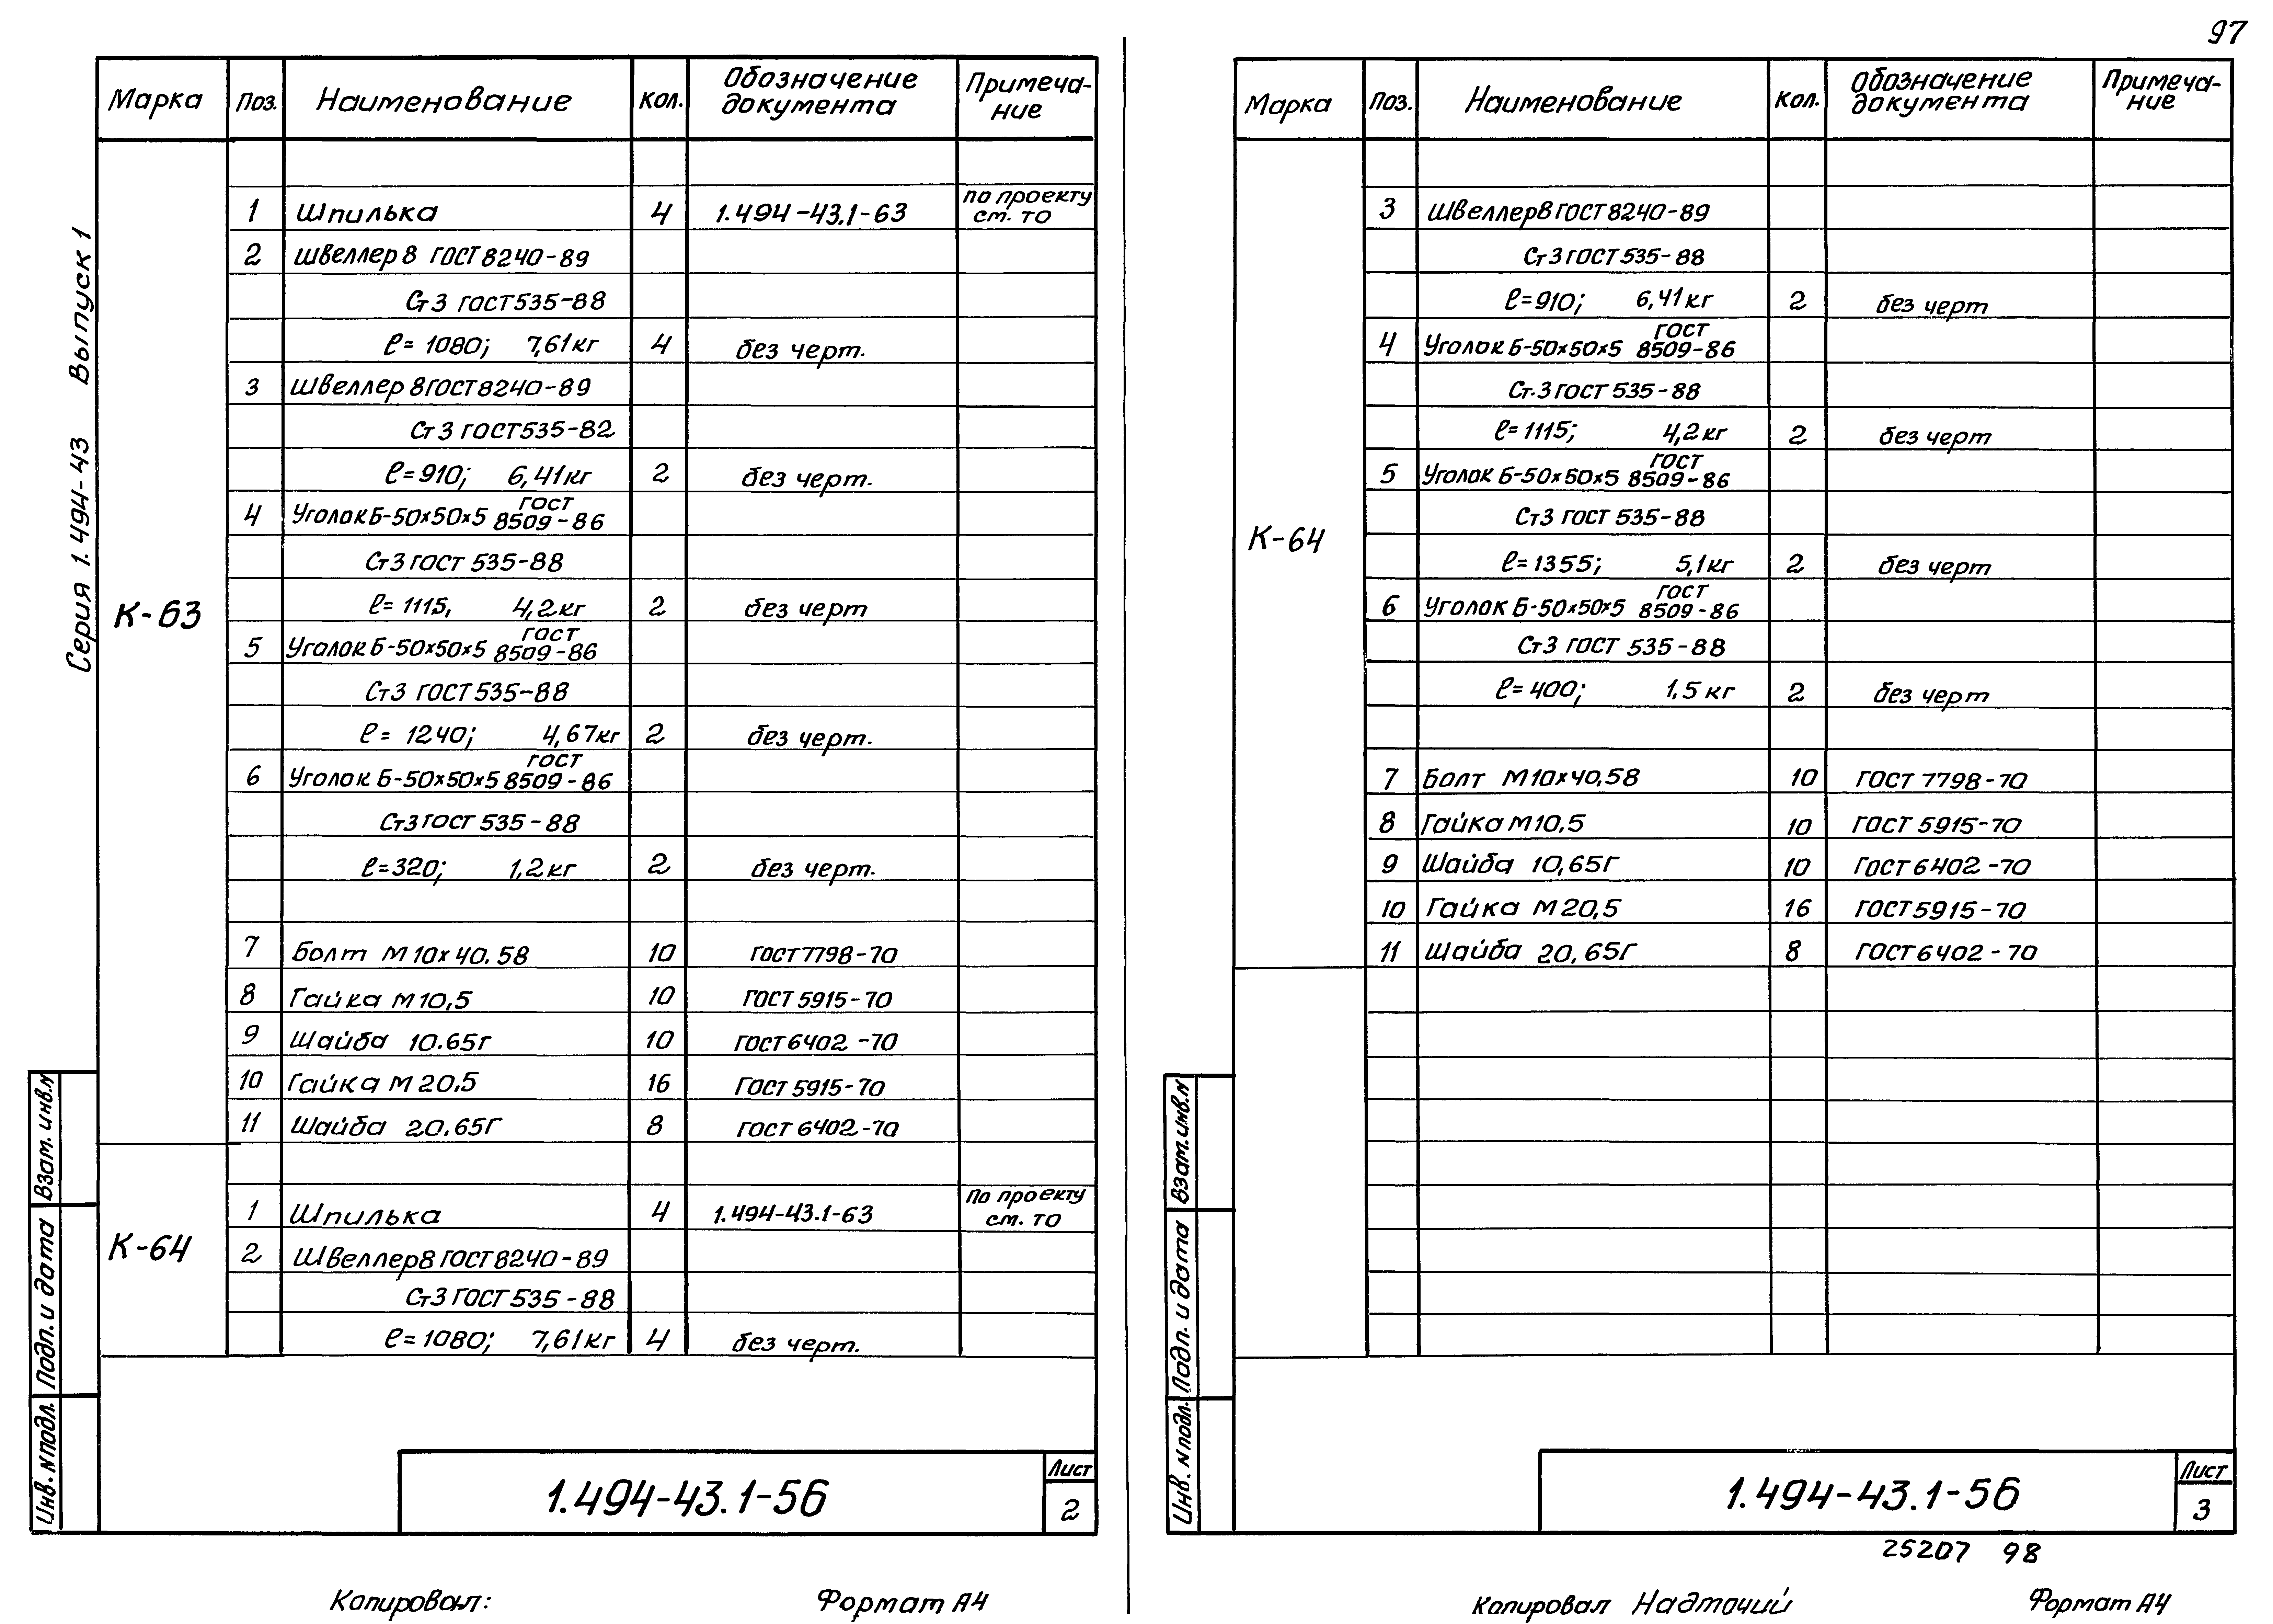 97
Серия 1.494-43 Выпуск 1
Марка Поз. Наименование Кол. Обозначение документа Примеча-ние
К-63
1 Шпилька 4 1.494-43.1-63 по проекту см. ТО
2 Швеллер 8 ГОСТ 8240-89
Ст3 ГОСТ 535-88
ℓ= 1080; 7,61кг 4 без черт.
3 Швеллер 8 ГОСТ 8240-89
Ст3 ГОСТ 535-82
ℓ=910; 6,41кг 2 без черт.
4 Уголок Б-50×50×5 ГОСТ 8509-86
Ст3 ГОСТ 535-88
ℓ= 1115, 4,2кг 2 без черт
5 Уголок Б-50×50×5 ГОСТ 8509-86
Ст3 ГОСТ 535-88
ℓ= 1240; 4,67кг 2 без черт.
6 Уголок Б-50×50×5 ГОСТ 8509-86
Ст3 ГОСТ 535-88
ℓ=320; 1,2кг 2 без черт.
7 Болт М10×40.58 10 ГОСТ 7798-70
8 Гайка М10,5 10 ГОСТ 5915-70
9 Шайба 10.65г 10 ГОСТ 6402-70
10 Гайка М20.5 16 ГОСТ 5915-70
11 Шайба 20.65Г 8 ГОСТ 6402-70
К-64
1 Шпилька 4 1.494-43.1-63 По проекту см. ТО
2 Швеллер 8 ГОСТ 8240-89
Ст3 ГОСТ 535-88
ℓ=1080; 7,61кг 4 без черт.
Взам. инв.N
Подп. и дата
Инв. N подл.
1.494-43.1-56
Лист
2
Копировал:
Формат А4
Марка Поз. Наименование Кол. Обозначение документа Примеча-ние
К-64
3 Швеллер 8 ГОСТ 8240-89
Ст3 ГОСТ 535-88
ℓ=910; 6,41кг 2 без черт
4 Уголок Б-50×50×5 ГОСТ 8509-86
Ст.3 ГОСТ 535-88
ℓ=1115; 4,2кг 2 без черт
5 Уголок Б-50×50×5 ГОСТ 8509-86
Ст3 ГОСТ 535-88
ℓ=1355; 5,1кг 2 без черт
6 Уголок Б-50×50×5 ГОСТ 8509-86
Ст3 ГОСТ 535-88
ℓ=400; 1.5кг 2 без черт
7 Болт М10×40,58 10 ГОСТ 7798-70
8 Гайка М10,5 10 ГОСТ 5915-70
9 Шайба 10,65Г 10 ГОСТ 6402-70
10 Гайка М20,5 16 ГОСТ 5915-70
11 Шайба 20,65Г 8 ГОСТ 6402-70
Взам. инв.N
Подп. и дата
Инв. N подл.
1.494-43.1-56
Лист
3
25207 98
Копировал Надточий
Формат А4